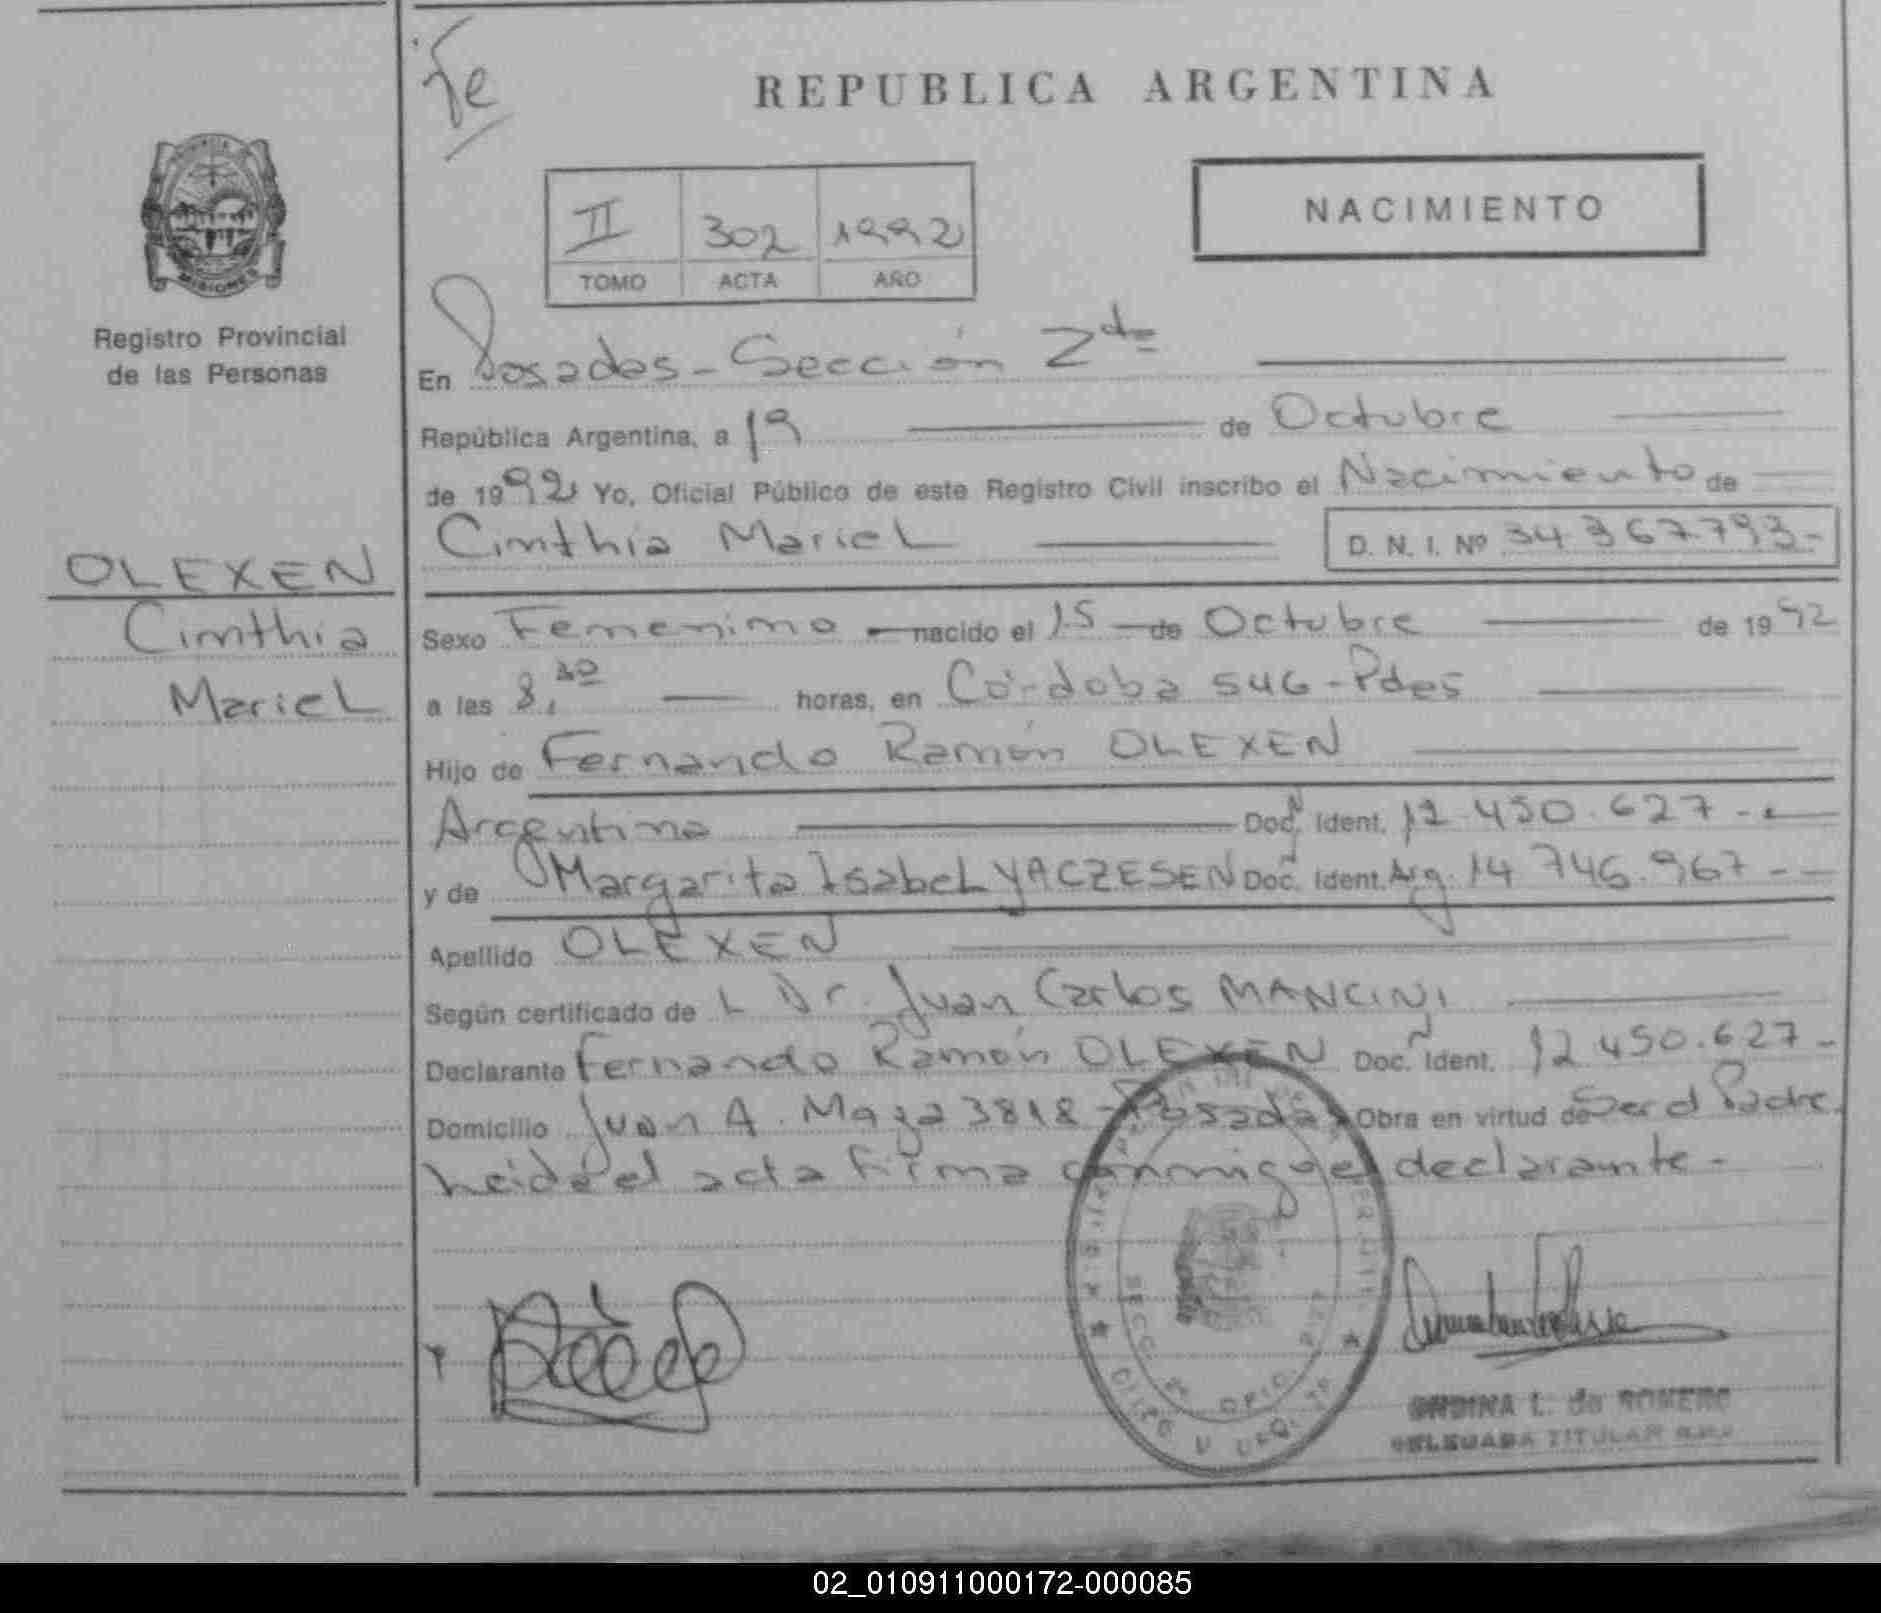 Fe
REPUBLICA ARGENTINA
II 302 1992
TOMO ACTA AÑO
NACIMIENTO
MISIONES
Registro Provincial
de las Personas
OLEXEN
Cinthia
Mariel
En Posadas - Sección 2da
República Argentina, a 19 de Octubre
de 1992 Yo, Oficial Público de este Registro Civil inscribo el Nacimiento de
Cinthia Mariel D. N. I. Nº 34.367.793-
Sexo Femenino nacido el 15 de Octubre de 1992
a las 8, horas, en Córdoba 546 - Pdas
Hijo de Fernando Ramón OLEXEN
Argentino Doc. Ident. 12.450.627 -
y de Margarita Isabel YACZESEN Doc. Ident. Arg. 14.746.967 - -
Apellido OLEXEN
Según certificado de L Dr. Juan Carlos MANCINI
Declarante Fernando Ramón OLEXEN Doc. Ident. 12.450.627 -
Domicilio Juan A. Maza 3818 - Posadas Obra en virtud de Ser el Padre.
Leída el acta firma conmigo el declarante -
SECC. 2
ONDINA L. de ROMERO
DELEGADA TITULAR
02_010911000172-000085